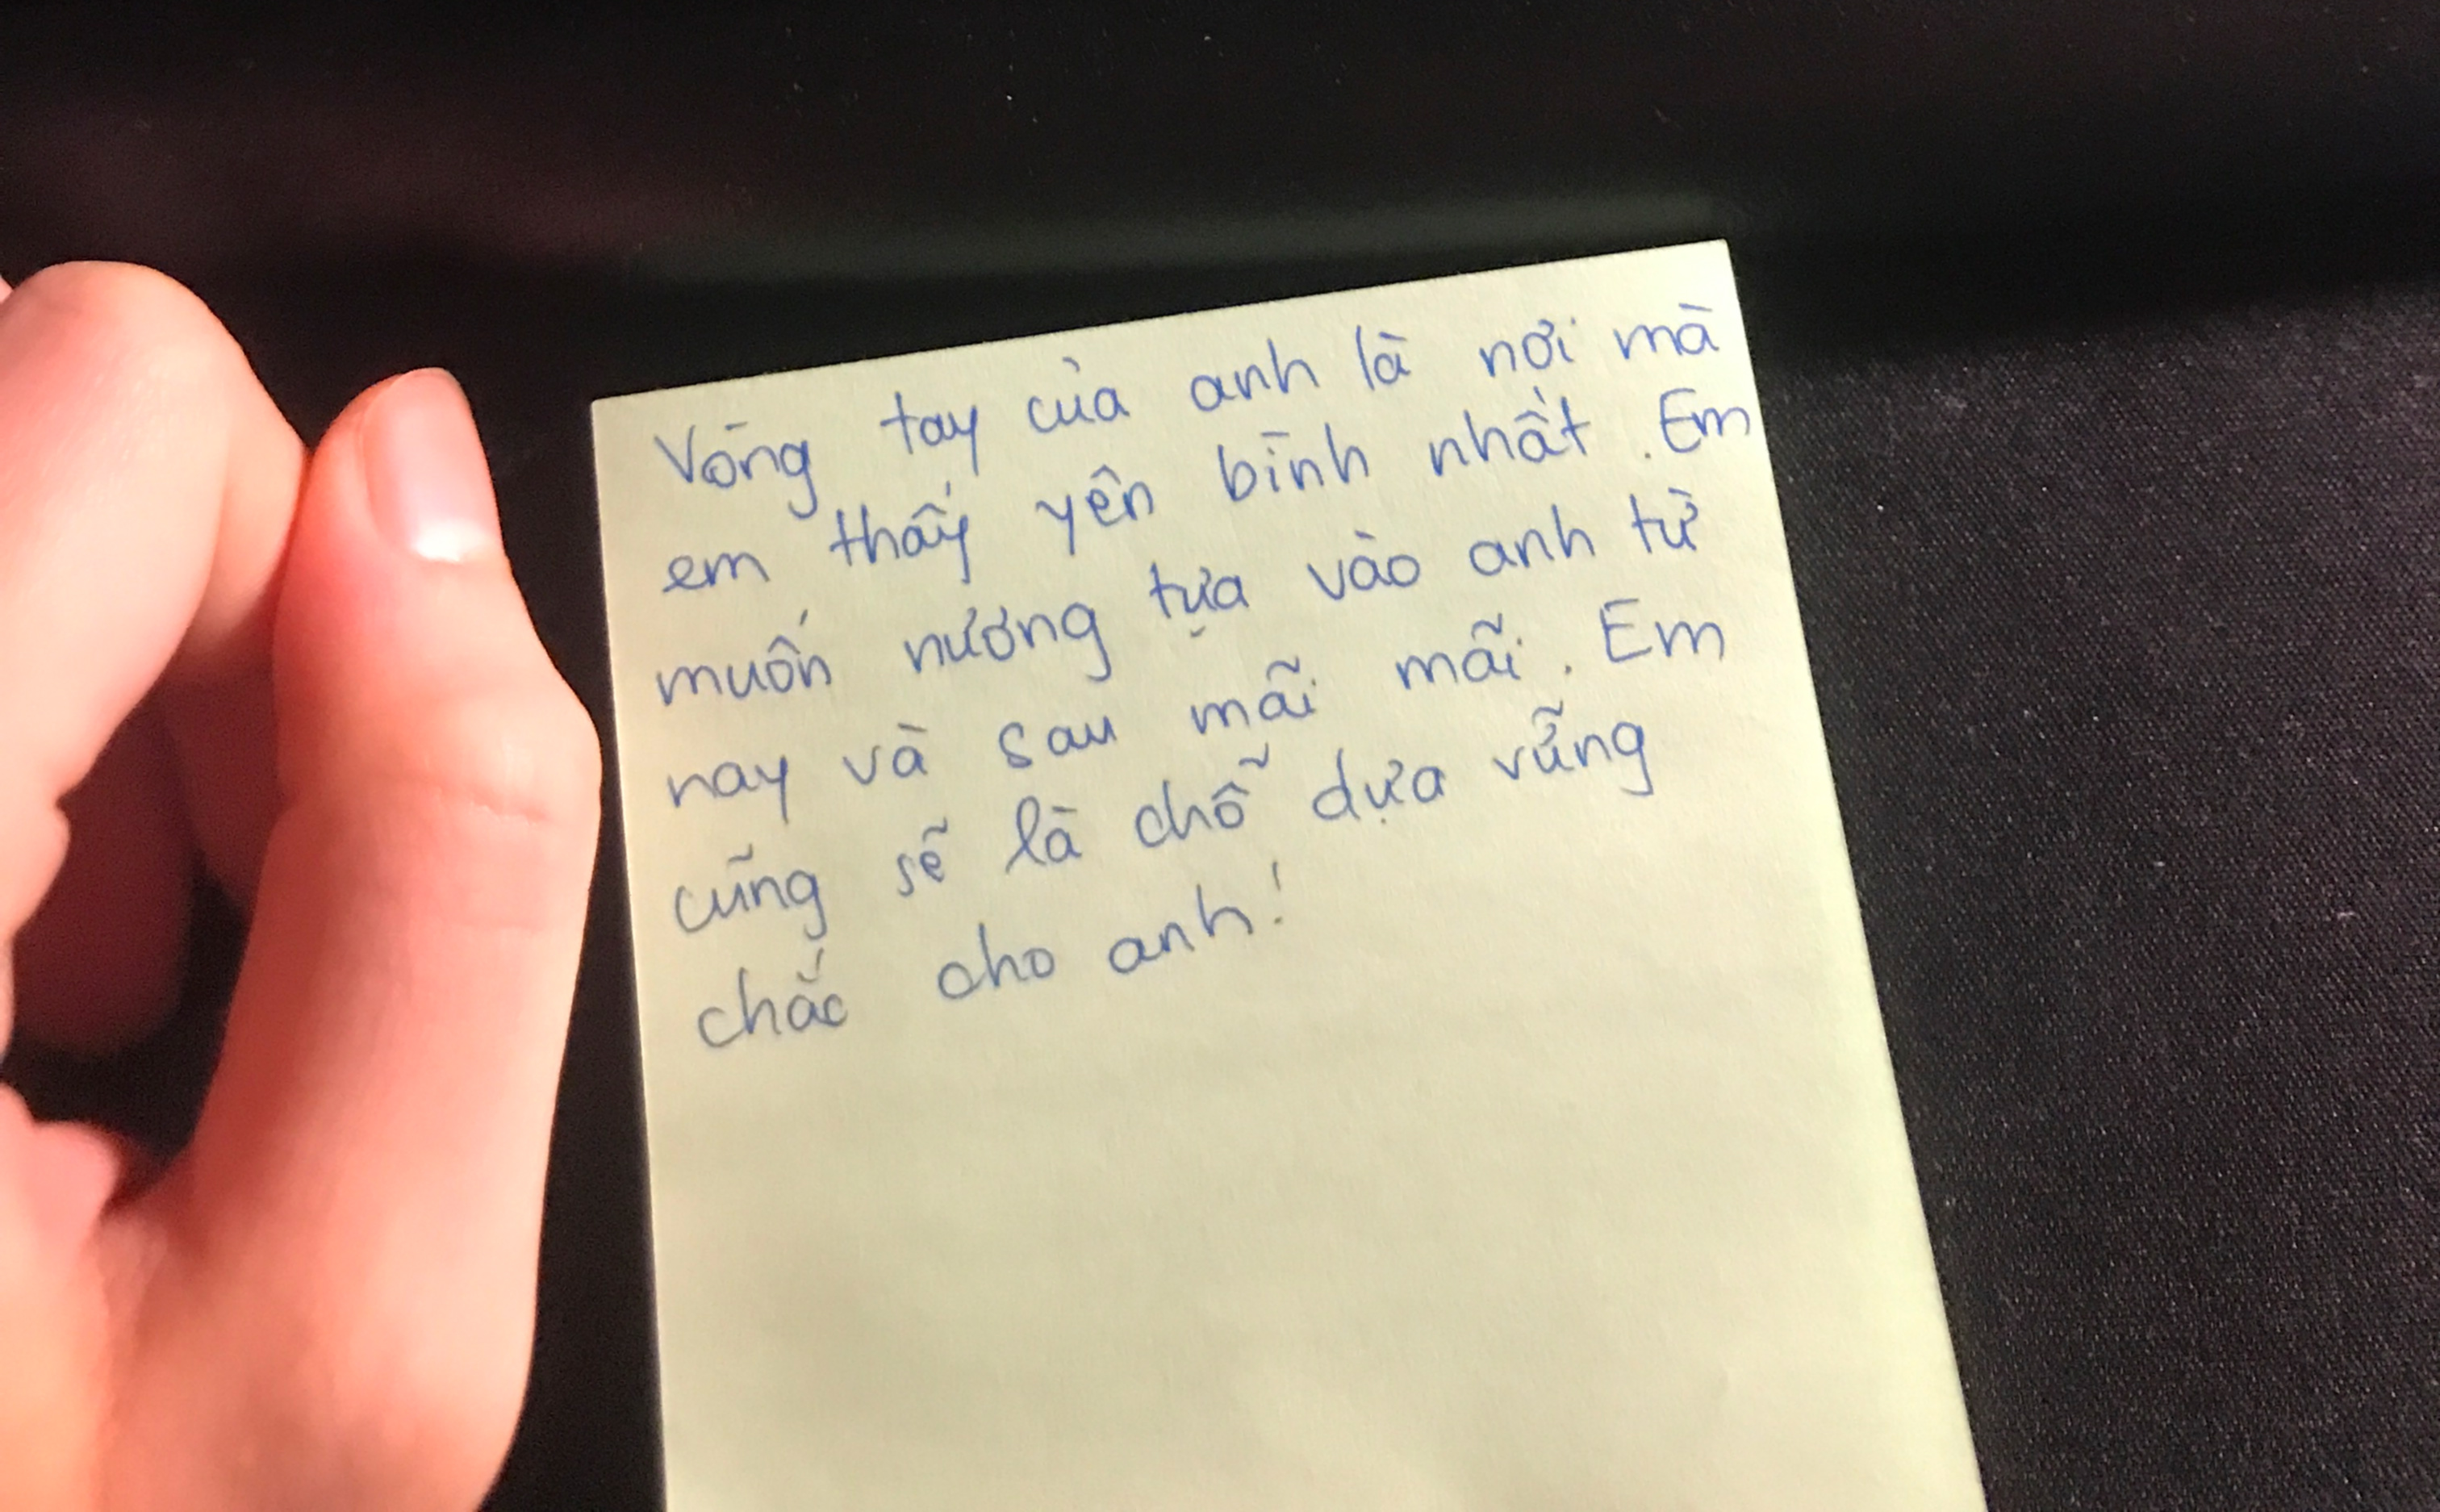 Vòng tay của anh là nơi mà
em thấy yên bình nhất. Em
muốn nương tựa vào anh từ
nay và sau mãi mãi. Em
cũng sẽ là chỗ dựa vững
chắc cho anh!